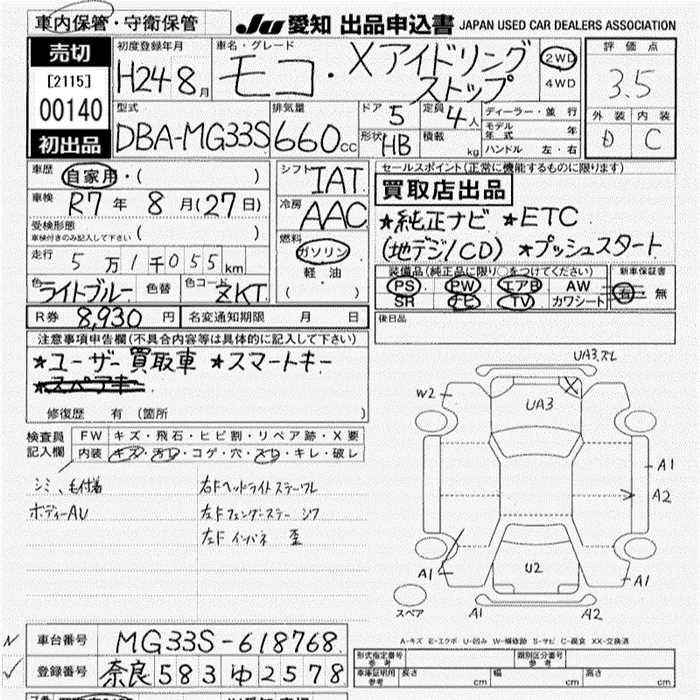 車内保管・守衛保管
JU 愛知 出品申込書 JAPAN USED CAR DEALERS ASSOCIATION
売切
[2115]
00140
初出品
初度登録年月
H24 8月
車名・グレード
モコ・Xアイドリング
ストップ
2WD
4WD
評価点
3.5
外装 内装
D C
型式
DBA-MG33S
排気量
660cc
ドア 5
形状 HB
定員 4人
積載 kg
ディーラー・並行
モデル年式 年
ハンドル 左・右
車歴 自家用・( )
車検 R7年 8月(27日)
受検形態
車検付きのみ記入して下さい ( )
走行 5万1千055km
色 ライトブルー 色替 色コード ZKT
シフト IAT
冷房 AAC
燃料
ガソリン
軽油
( )
セールスポイント(正常に機能するものに限ります)
買取店出品
★純正ナビ ★ETC
(地デジ/CD) ★プッシュスタート
装備品(純正品に限り○をつけてください)
PS PW エアB AW
SR ナビ TV カワシート
新車保証書
有・無
R券 8,930円 名変通知期限 月 日
後日品
注意事項申告欄(不具合内容等は具体的に記入して下さい)
★ユーザー買取車 ★スマートキー
★スペアキー
修復歴 有(箇所 )
検査員
記入欄
FW キズ・飛石・ヒビ割・リペア跡・X要
内装 キズ・汚レ・コゲ・穴・スレ・キレ・破レ
シミ、毛付着
ボディーAU
右Fヘッドライトステーワレ
左Fフェンダーステー シワ
左Fインパネ 歪
UA3.ズレ
W2
UA3
X
A1
A2
A1
U2
A1
スペア
A1
A2
A-キズ E-エクボ U-凹み W-補修跡 S-サビ C-腐食 XX-交換済
車台番号 MG33S-618768
登録番号 奈良583ゆ2578
形式指定番号 参考
類別区分番号 参考
車庫証明用 参考 長さ cm 幅 cm 高さ cm